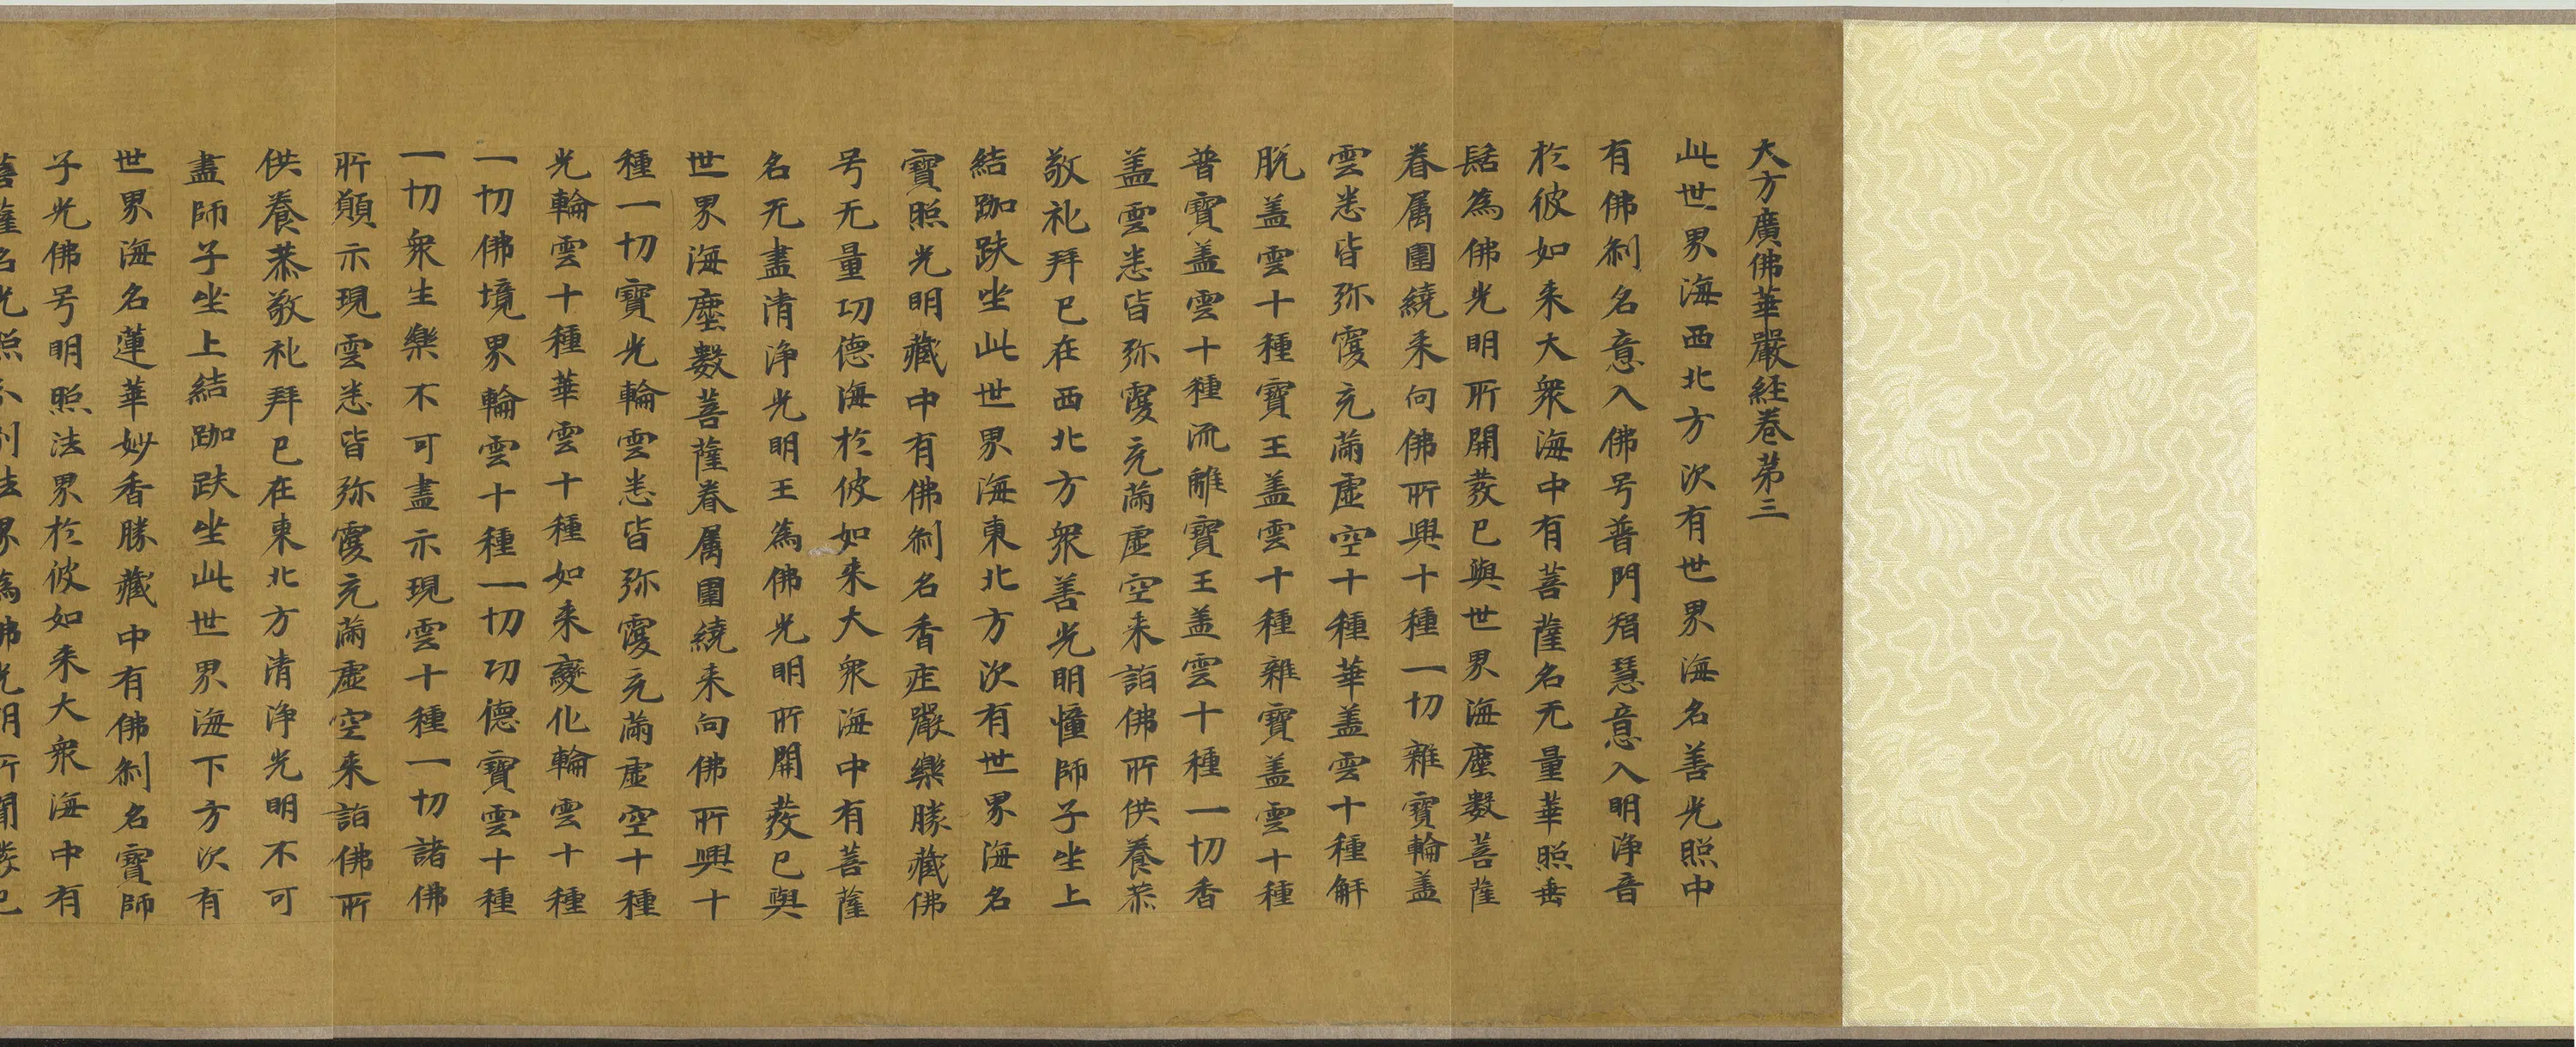 大方廣佛華嚴経卷苐三
此世界海西北方次有世界海名善光照中
有佛刹名意入佛号普門智慧意入明淨音
於彼如来大衆海中有菩薩名无量華照垂
髻為佛光明所開發已與世界海塵數菩薩
眷属圍繞来向佛所興十種一切雜寶輪盖
雲悉皆弥覆充滿虛空十種華盖雲十種解
脱盖雲十種寶王盖雲十種雜寶盖雲十種
普寶盖雲十種流離寶王盖雲十種一切香
盖雲悉皆弥覆充滿虛空来詣佛所供養恭
敬礼拜已在西北方衆善光明幢師子坐上
結跏趺坐此世界海東北方次有世界海名
寶照光明藏中有佛刹名香庄嚴樂勝藏佛
号无量功德海於彼如来大衆海中有菩薩
名无盡清淨光明王為佛光明所開發已與
世界海塵數菩薩眷属圍繞来向佛所興十
種一切寶光輪雲悉皆弥覆充滿虛空十種
光輪雲十種華雲十種如来變化輪雲十種
一切佛境界輪雲十種一切功德寶雲十種
一切衆生樂不可盡示現雲十種一切諸佛
所願示現雲悉皆弥覆充滿虛空来詣佛所
供養恭敬礼拜已在東北方清淨光明不可
盡師子坐上結跏趺坐此世界海下方次有
世界海名蓮華妙香勝藏中有佛刹名寶師
子光佛号明照法界於彼如来大衆海中有